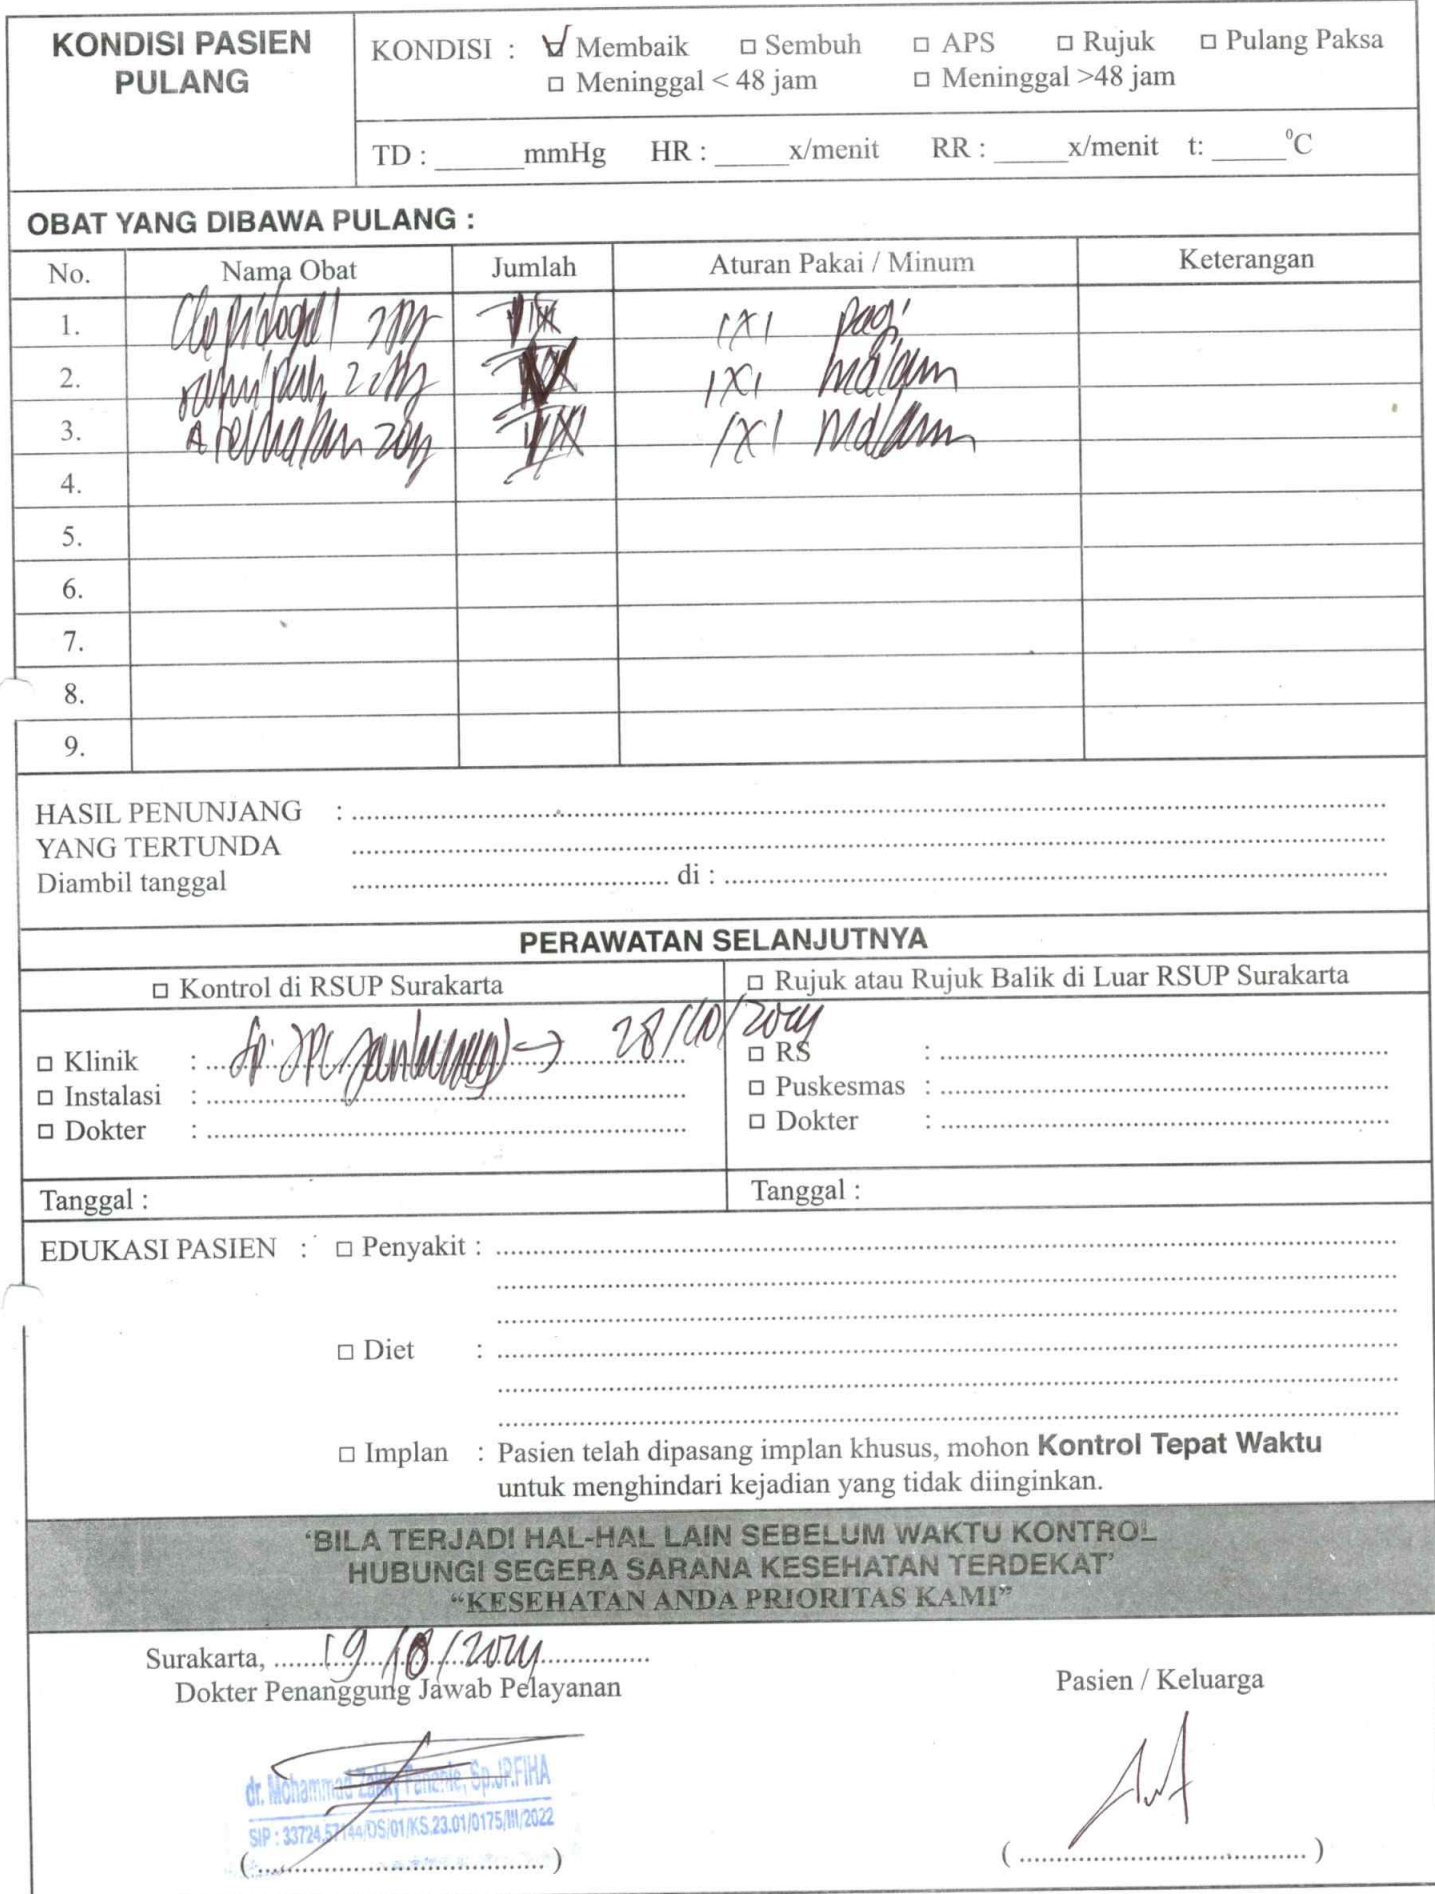 KONDISI PASIEN PULANG
KONDISI : ☑ Membaik □ Sembuh □ APS □ Rujuk □ Pulang Paksa
□ Meninggal < 48 jam □ Meninggal >48 jam
TD : ______mmHg HR : _____x/menit RR : _____x/menit t: _____⁰C
OBAT YANG DIBAWA PULANG :
No. Nama Obat Jumlah Aturan Pakai / Minum Keterangan
1. 1X1 pagi
2. 1X1 malam
3. 1X1 malam
4.
5.
6.
7.
8.
9.
HASIL PENUNJANG : ..........
YANG TERTUNDA ..........
Diambil tanggal .......... di : ..........
PERAWATAN SELANJUTNYA
□ Kontrol di RSUP Surakarta □ Rujuk atau Rujuk Balik di Luar RSUP Surakarta
□ Klinik : → 28/10/2024 □ RS : ..........
□ Instalasi : .......... □ Puskesmas : ..........
□ Dokter : .......... □ Dokter : ..........
Tanggal : Tanggal :
EDUKASI PASIEN : □ Penyakit : ..........
□ Diet : ..........
□ Implan : Pasien telah dipasang implan khusus, mohon Kontrol Tepat Waktu
untuk menghindari kejadian yang tidak diinginkan.
'BILA TERJADI HAL-HAL LAIN SEBELUM WAKTU KONTROL
HUBUNGI SEGERA SARANA KESEHATAN TERDEKAT'
"KESEHATAN ANDA PRIORITAS KAMI"
Surakarta, 19/10/2024
Dokter Penanggung Jawab Pelayanan Pasien / Keluarga
dr. Mohammad Sp.JP.FIHA
SIP : 33724.57144/DS/01/KS.23.01/0175/III/2022
( .......... ) ( .......... )